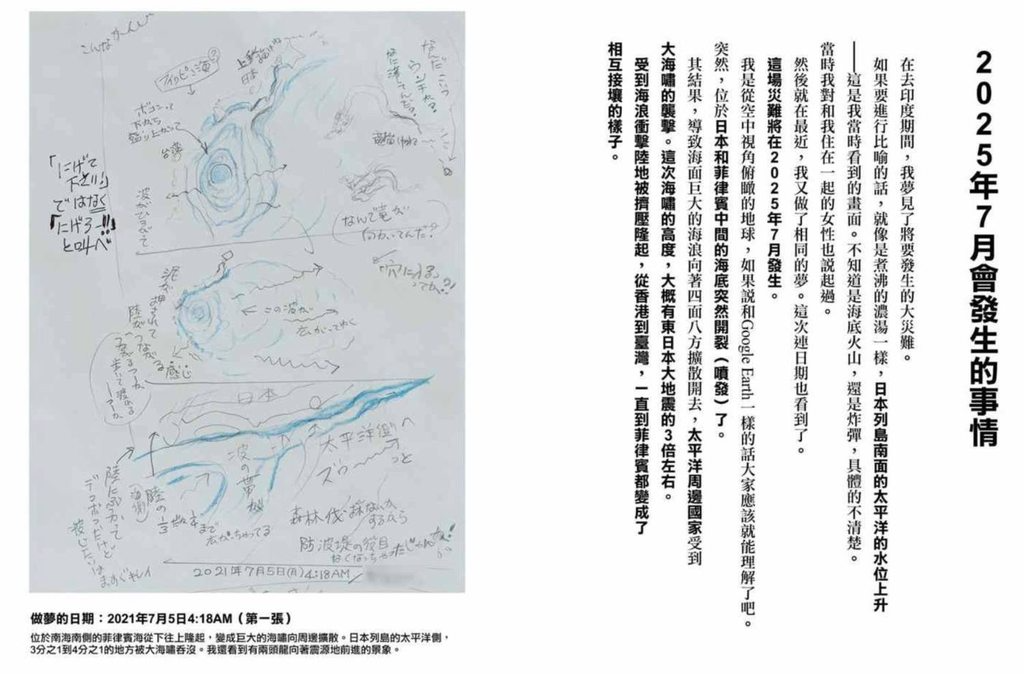 2025年7月會發生的事情
在去印度期間，我夢見了將要發生的大災難。
如果要進行比喻的話，就像是煮沸的濃湯一樣，日本列島南面的太平洋的水位上升
——這是我當時看到的畫面。不知道是海底火山，還是炸彈，具體的不清楚。
當時我對和我住在一起的女性也説起過。
然後就在最近，我又做了相同的夢。這次連日期也看到了。
這場災難將在2025年7月發生。
我是從空中視角俯瞰的地球，如果説和Google Earth一樣的話大家應該就能理解了吧。
突然，位於日本和菲律賓中間的海底突然開裂（噴發）了。
其結果，導致海面巨大的海浪向著四面八方擴散開去，太平洋周邊國家受到
大海嘯的襲擊。這次海嘯的高度，大概有東日本大地震的3倍左右。
受到海浪衝擊陸地被擠壓隆起，從香港到臺灣，一直到菲律賓都變成了
相互接壤的樣子。
こんなかんじ
フィリピン海?
日本
ボコンって
下から
盛り上がって
台湾
「にげて
下さい!」
ではなく
「にげろー!!」
と叫べ
なんで竜が
向かってんだ?
この波が
広がってゆく
感じ
日本
太平洋側へ
ズゥーっと
波の
陸の
森林伐採なんか
するから
防波堤の役目
2021年7月5日(月)4:18AM
做夢的日期：2021年7月5日4:18AM（第一張）
位於南海南側的菲律賓海從下往上隆起，變成巨大的海嘯向周邊擴散。日本列島的太平洋側，
3分之1到4分之1的地方被大海嘯吞沒。我還看到有兩頭龍向著震源地前進的景象。